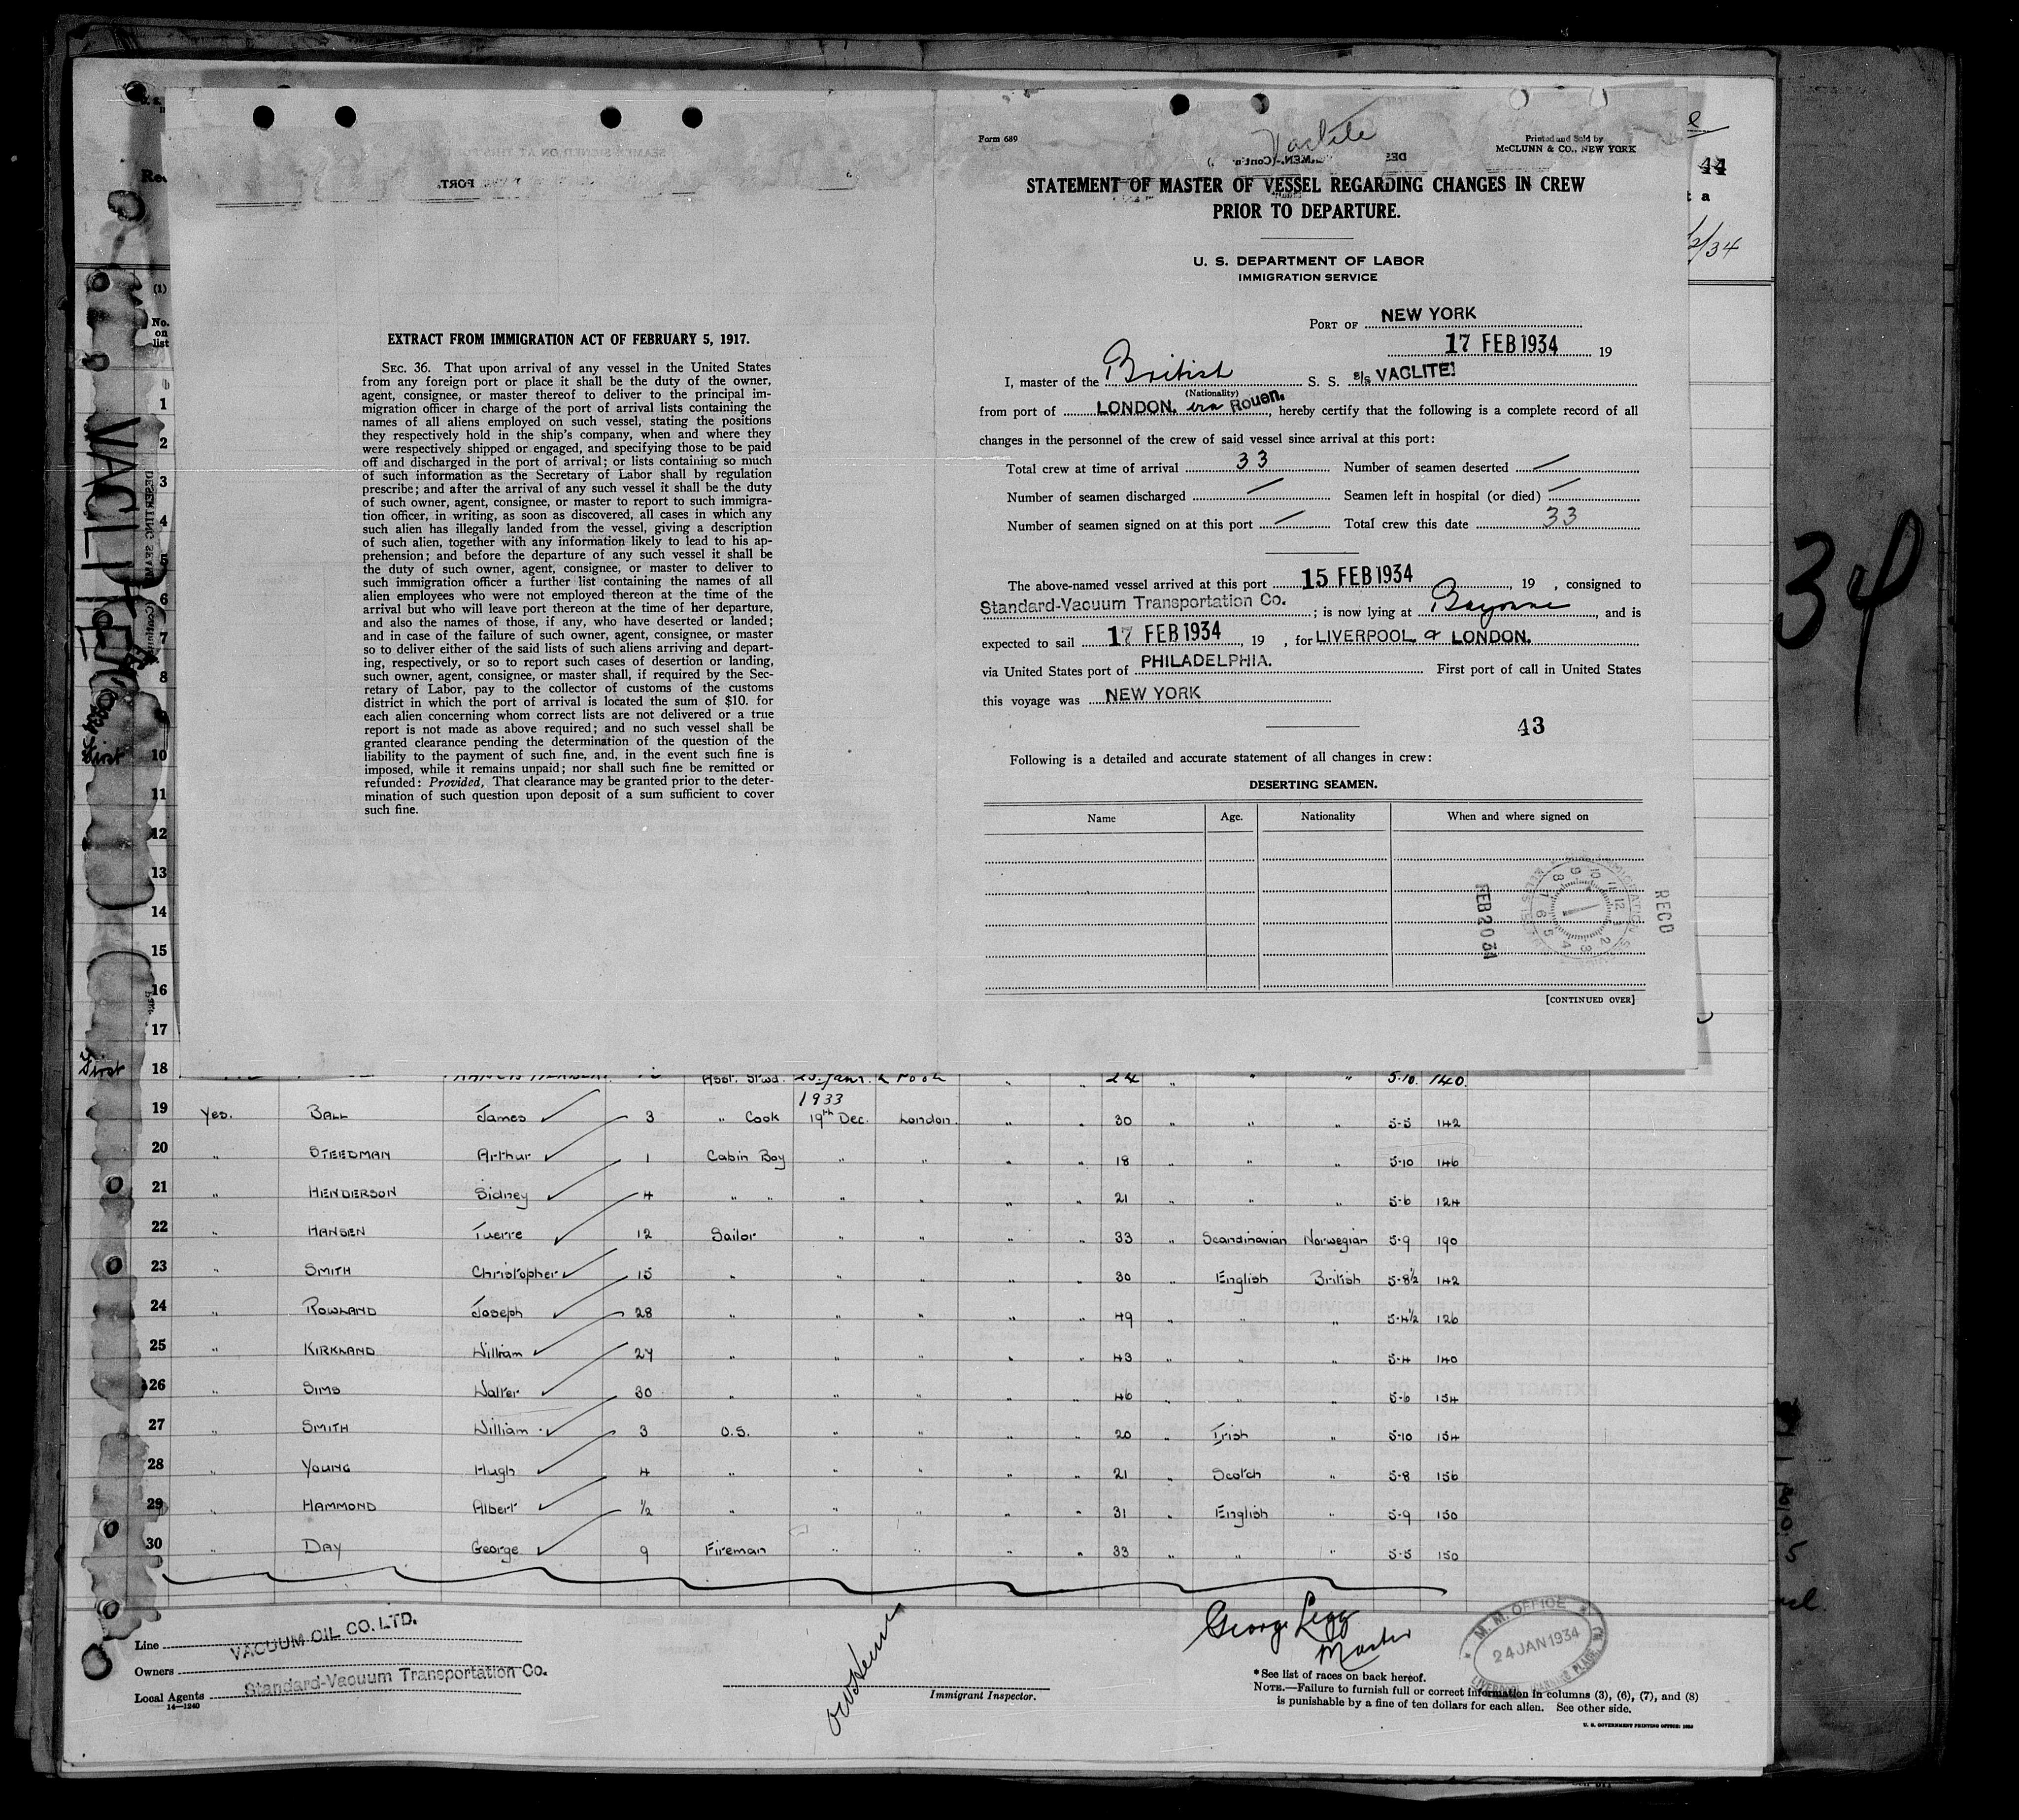 Form 689
Vaclite
Printed and Sold by
McCLUNN & CO., NEW YORK
STATEMENT OF MASTER OF VESSEL REGARDING CHANGES IN CREW
PRIOR TO DEPARTURE.
U. S. DEPARTMENT OF LABOR
IMMIGRATION SERVICE
PORT OF NEW YORK
17 FEB 1934 19
I, master of the British S. S. s/s VACLITE
(Nationality)
from port of LONDON. via Rouen., hereby certify that the following is a complete record of all
changes in the personnel of the crew of said vessel since arrival at this port:
Total crew at time of arrival 33 Number of seamen deserted /
Number of seamen discharged / Seamen left in hospital (or died) /
Number of seamen signed on at this port / Total crew this date 33
The above-named vessel arrived at this port 15 FEB 1934, 19 , consigned to
Standard-Vacuum Transportation Co. ; is now lying at Bayonne, and is
expected to sail 17 FEB 1934, 19 , for LIVERPOOL & LONDON.
via United States port of PHILADELPHIA. First port of call in United States
this voyage was NEW YORK
43
Following is a detailed and accurate statement of all changes in crew:
DESERTING SEAMEN.
Name Age. Nationality When and where signed on
RECD
[CONTINUED OVER]
EXTRACT FROM IMMIGRATION ACT OF FEBRUARY 5, 1917.
SEC. 36. That upon arrival of any vessel in the United States
from any foreign port or place it shall be the duty of the owner,
agent, consignee, or master thereof to deliver to the principal im-
migration officer in charge of the port of arrival lists containing the
names of all aliens employed on such vessel, stating the positions
they respectively hold in the ship's company, when and where they
were respectively shipped or engaged, and specifying those to be paid
off and discharged in the port of arrival; or lists containing so much
of such information as the Secretary of Labor shall by regulation
prescribe; and after the arrival of any such vessel it shall be the duty
of such owner, agent, consignee, or master to report to such immigra-
tion officer, in writing, as soon as discovered, all cases in which any
such alien has illegally landed from the vessel, giving a description
of such alien, together with any information likely to lead to his ap-
prehension; and before the departure of any such vessel it shall be
the duty of such owner, agent, consignee, or master to deliver to
such immigration officer a further list containing the names of all
alien employees who were not employed thereon at the time of the
arrival but who will leave port thereon at the time of her departure,
and also the names of those, if any, who have deserted or landed;
and in case of the failure of such owner, agent, consignee, or master
so to deliver either of the said lists of such aliens arriving and depart-
ing, respectively, or so to report such cases of desertion or landing,
such owner, agent, consignee, or master shall, if required by the Sec-
retary of Labor, pay to the collector of customs of the customs
district in which the port of arrival is located the sum of $10. for
each alien concerning whom correct lists are not delivered or a true
report is not made as above required; and no such vessel shall be
granted clearance pending the determination of the question of the
liability to the payment of such fine, and, in the event such fine is
imposed, while it remains unpaid; nor shall such fine be remitted or
refunded: Provided, That clearance may be granted prior to the deter-
mination of such question upon deposit of a sum sufficient to cover
such fine.
44
34
(1)
No.
on
list
1
2
3
4
5
6
7
8
9
10
11
12
13
14
15
16
17
18 Asst. Stwd. 24 " " 5-10. 140.
1933
19 Yes. BALL James 3 " Cook 19th Dec. London. " " 30 " " " 5-5 142
20 " STEEDMAN Arthur 1 Cabin Boy " " " " 18 " " " 5-10 146
21 " HENDERSON Sidney 4 " " " " " " 21 " " " 5-6 124
22 " HANSEN Tverre 12 Sailor " " " " 33 " Scandinavian Norwegian 5-9 190
23 " SMITH Christopher 15 " " " " " 30 " English British 5-8½ 142
24 " ROWLAND Joseph 28 " " " " " 49 " " " 5-4½ 126
25 " KIRKLAND William 27 " " " " " 43 " " " 5-4 140
26 " SIMS Walter 30 " " " " " 46 " " " 5-6 154
27 " SMITH William 3 O.S. " " " " 20 " Irish " 5-10 154
28 " YOUNG Hugh 4 " " " " " 21 " Scotch " 5-8 156
29 " HAMMOND Albert ½ " " " " " 31 " English " 5-9 150
30 " DAY George 9 Fireman " " " " 33 " " " 5-5 150
Line VACUUM OIL CO. LTD.
Owners
Local Agents Standard-Vacuum Transportation Co.
14—1240
Immigrant Inspector.
George Legg
Master
M. M. OFFICE
24 JAN 1934
LIVERPOOL LANDING PLACE
*See list of races on back hereof.
NOTE.—Failure to furnish full or correct information in columns (3), (6), (7), and (8)
is punishable by a fine of ten dollars for each alien. See other side.
U. S. GOVERNMENT PRINTING OFFICE